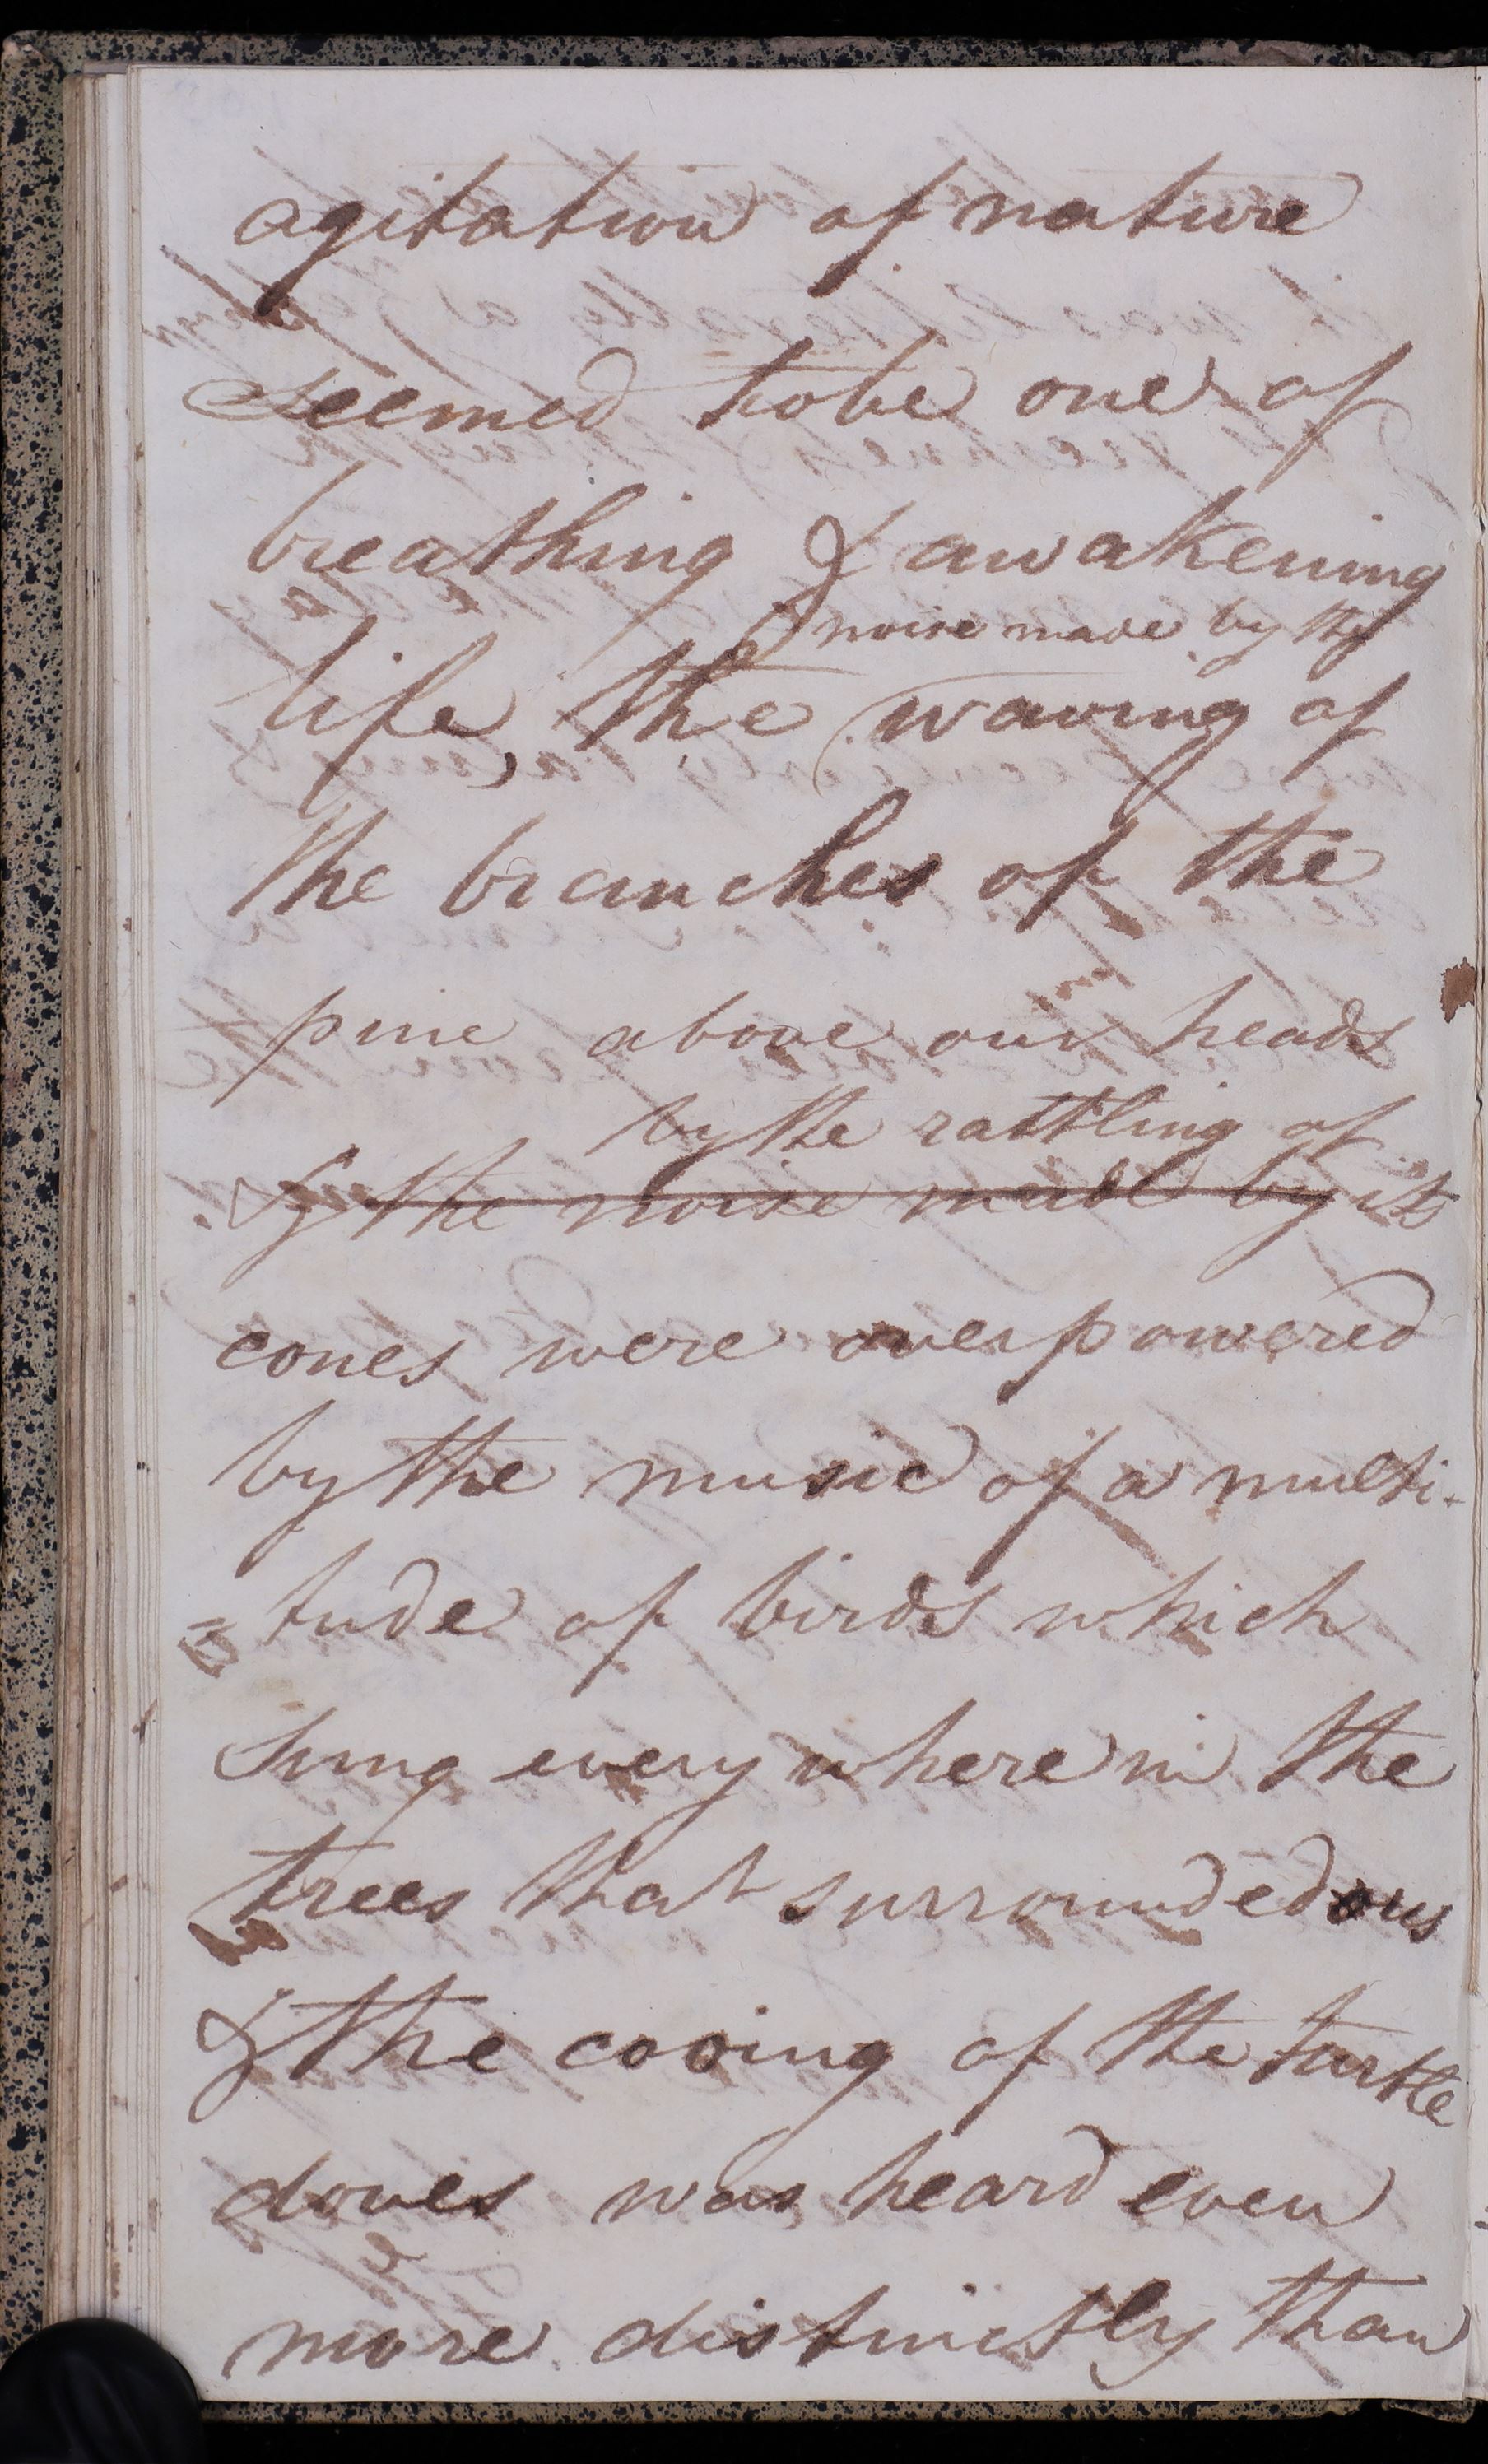 agitation of nature
seemed to be one of
breathing & awakening
noise made by the
life, the waving of
the branches of the
pine above our heads
by the rattling of
& the noise made by its
cones were overpowered
by the music of a multi-
=tude of birds which
sung every where in the
trees that surrounded us
& the cooing of the turtle
doves was heard even
more distinctly than